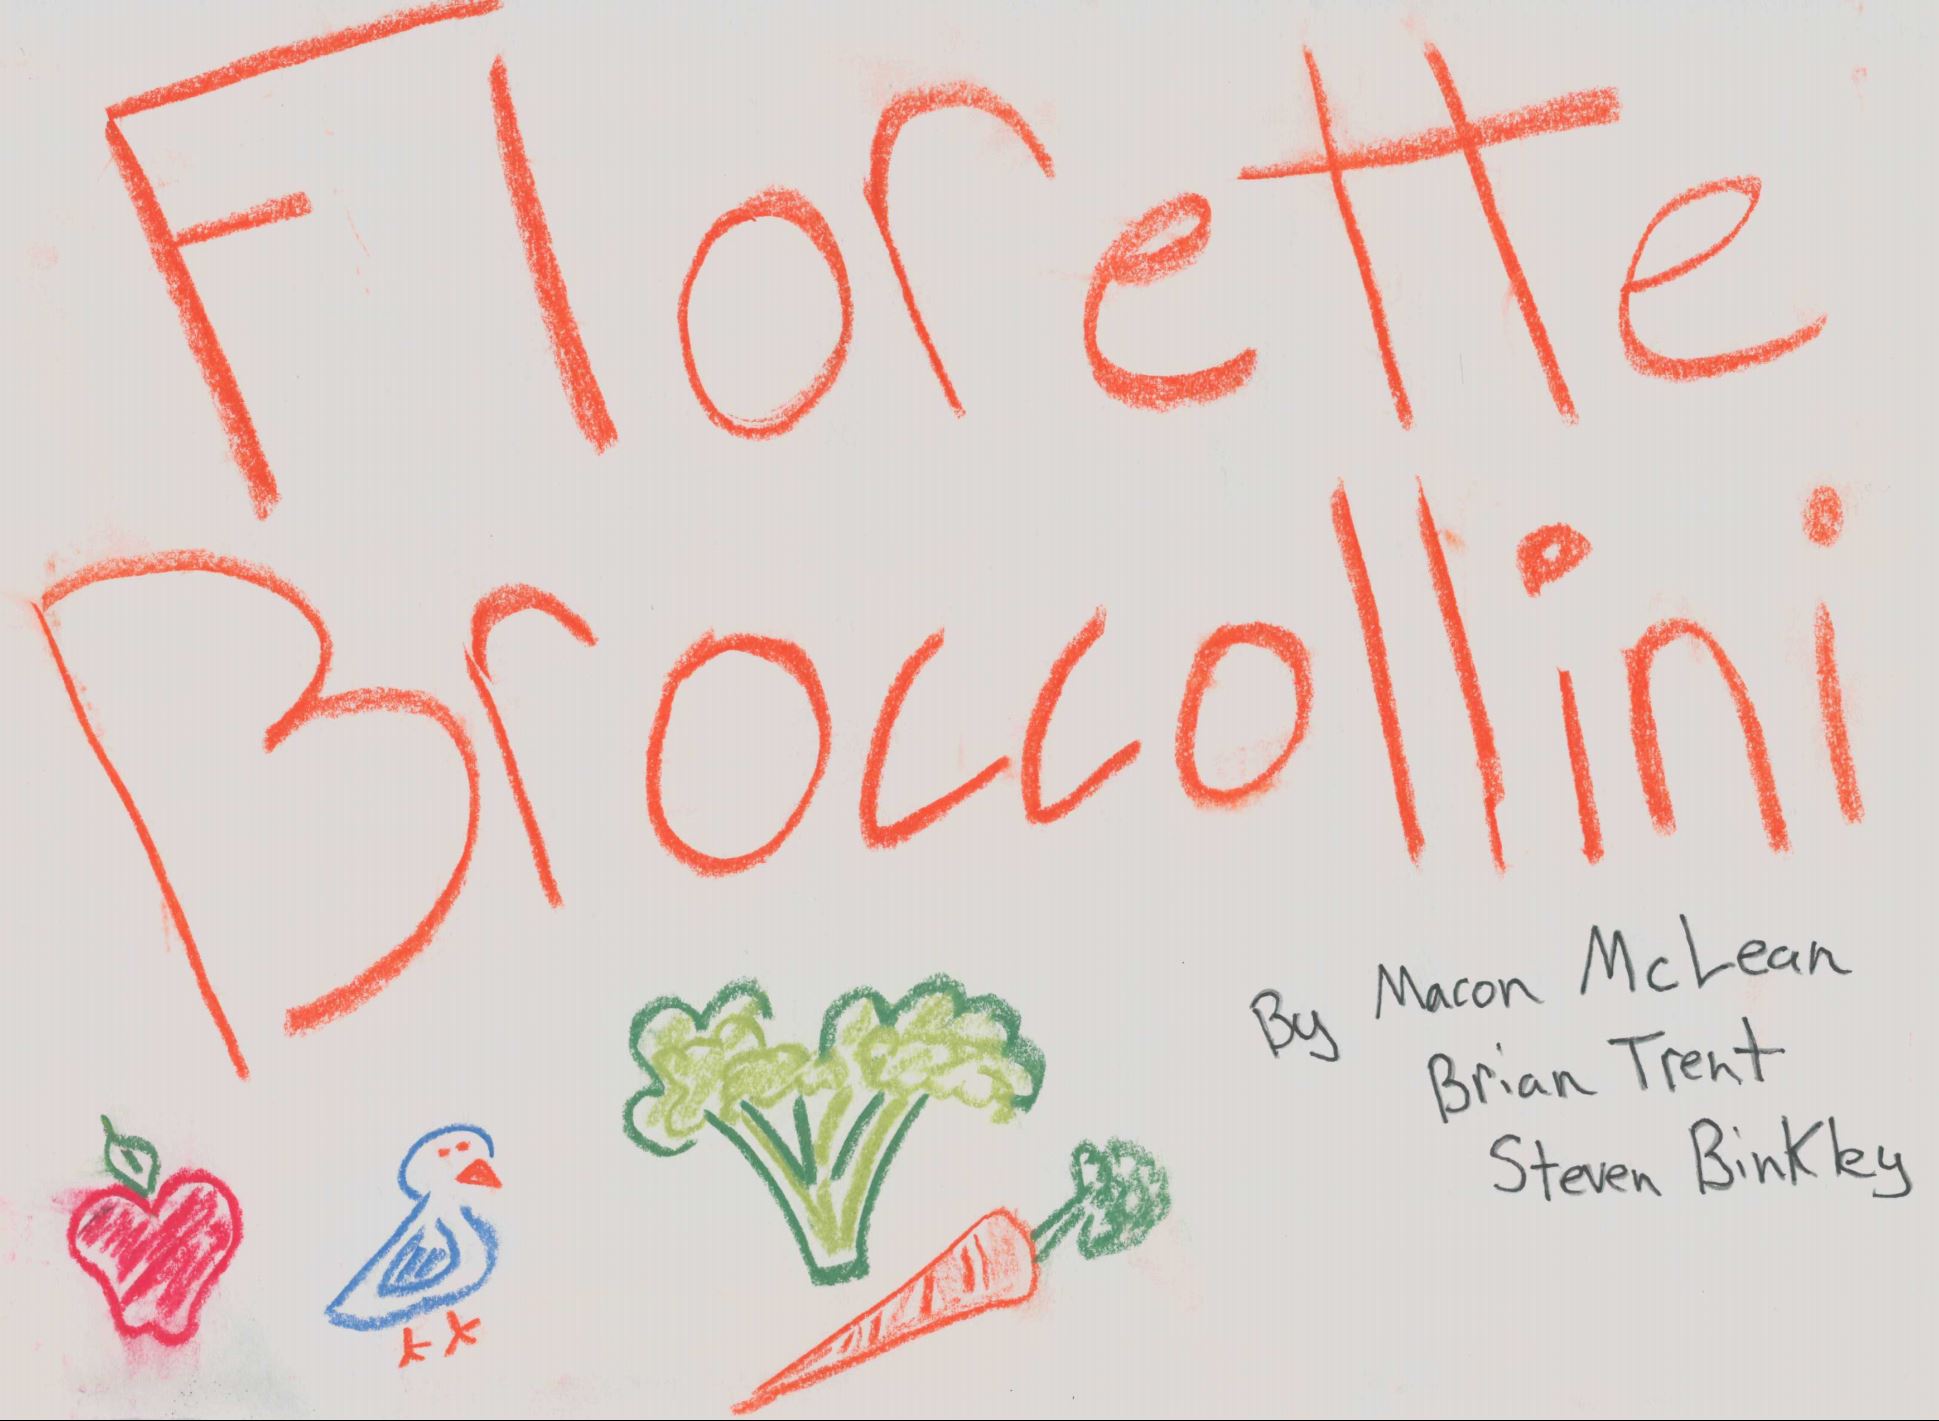 Florette
Broccollini
By Macon McLean
Brian Trent
Steven Binkley